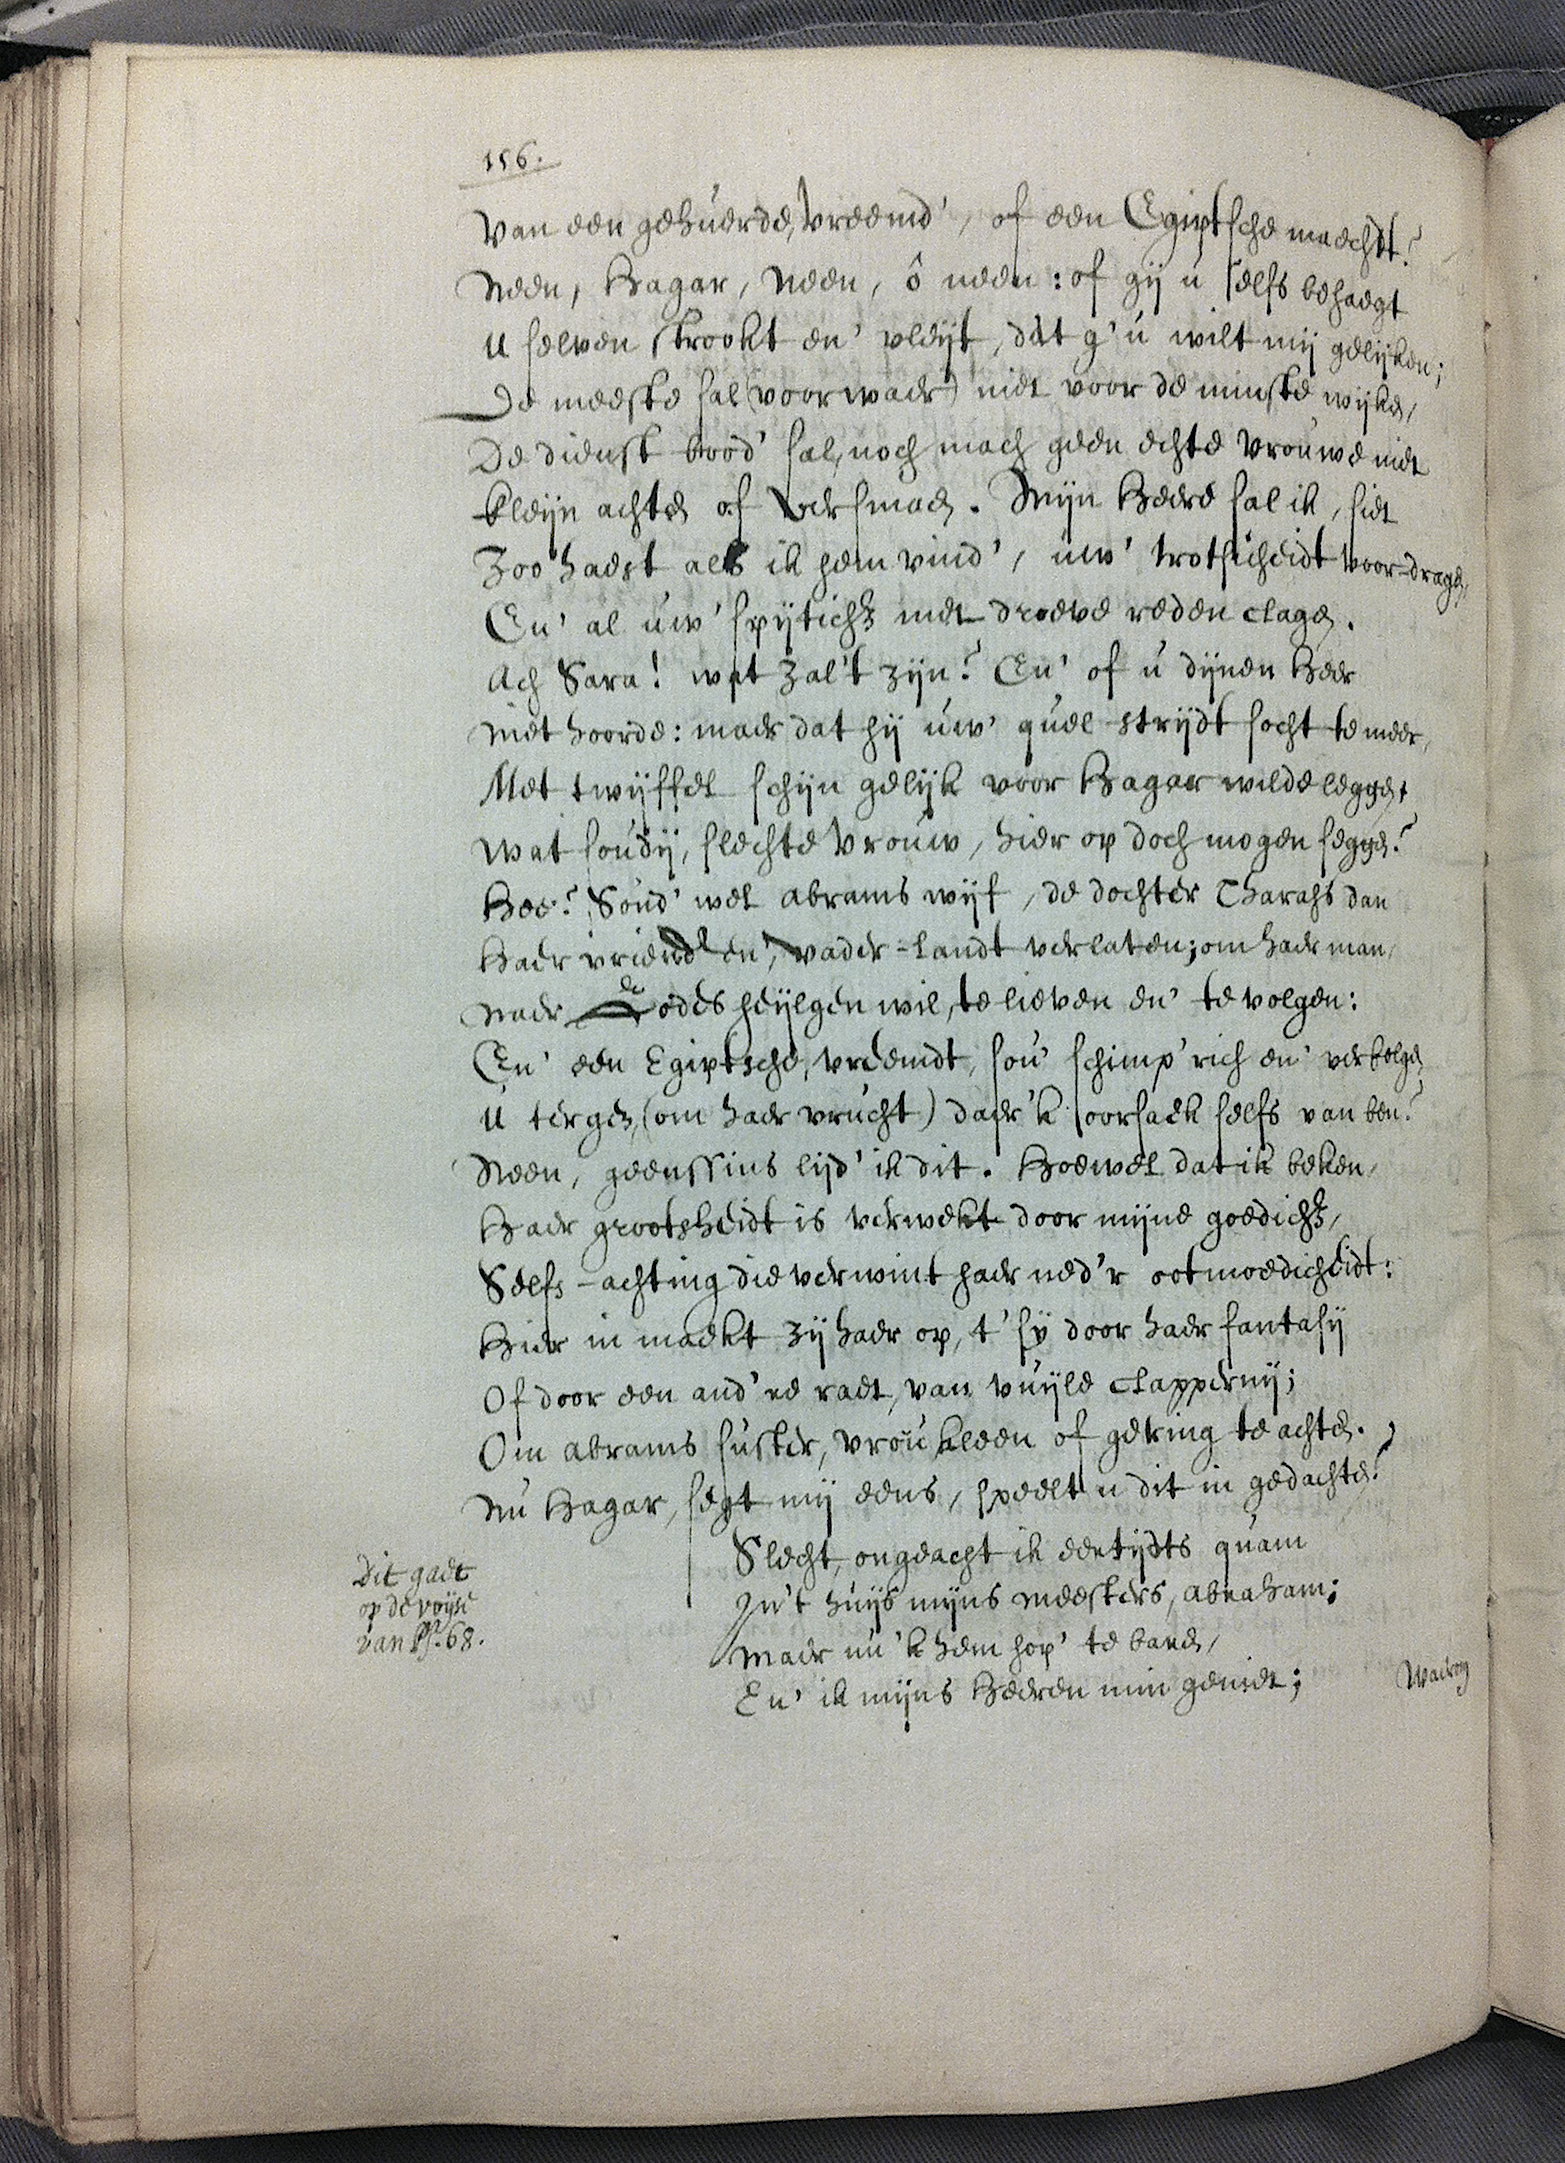 156.
Van een gehuerde, vreemd', of een Egiptsche maechdt?
Neen, Hagar, Neen, ô neen: of gij u selfs behaegt
U selven strookt en' vleijt, dat g'u wilt mij gelijken;
De meeste sal (voorwaer) niet voor de minste wijken,
De dienst bood' sal, noch mach geen echte vrouwe niet
kleijn achten of versmaen. Mijn Heere sal ik, siet
Zoo haest als ik hem vind', uw' trotsicheidt voor-dragen,
En' al uw' spijticht met droeve reden clagen.
Ach Sara! wat zal't zijn? En' of u dijnen Heer
Niet hoorde: maer dat hij uw' quel-strijdt socht te meer,
Met twijffel schijn gelijk voor Hagar wilde leggen,
Wat soudij, slechte Vrouw, hier op doch mogen seggen?
Hoe? Soud' wel abrams wijf, de dochter Tharahs dan
Haer vriend en' vader-landt verlaten; om haer man,
Naer de odes heijlgen wil, te lieven en' te volgen:
En' een Egiptsche, vreemdt, sou' schimp'rich en' verbolgen
U tergen, (om haer vrucht) daer'k oorsaek selfs van ben?
Neen, geenssins lijd' ik dit. Hoewel dat ik beken,
Haer grootsheidt is verwekt door mijne goedicht,
Selfs-achting die verwint haer ned'r ootmoedicheidt:
Hier in maekt zij haer op, t'sy door haer fantasij
Of door een and're raet, van vuijle clappernij;
Om abrams suster, vrou kleen of gering te achten.
Nu Hagar, segt mij eens, speelt u dit in gedachten?
Slecht, ongeacht ik eertijdts quam
In't huijs mijns meesters, abraham;
Maer nu 'k hem hop' te baren,
En' ik mijns Heeren min geniet;
Dit gaet
op de voijse
van Ps. 68.